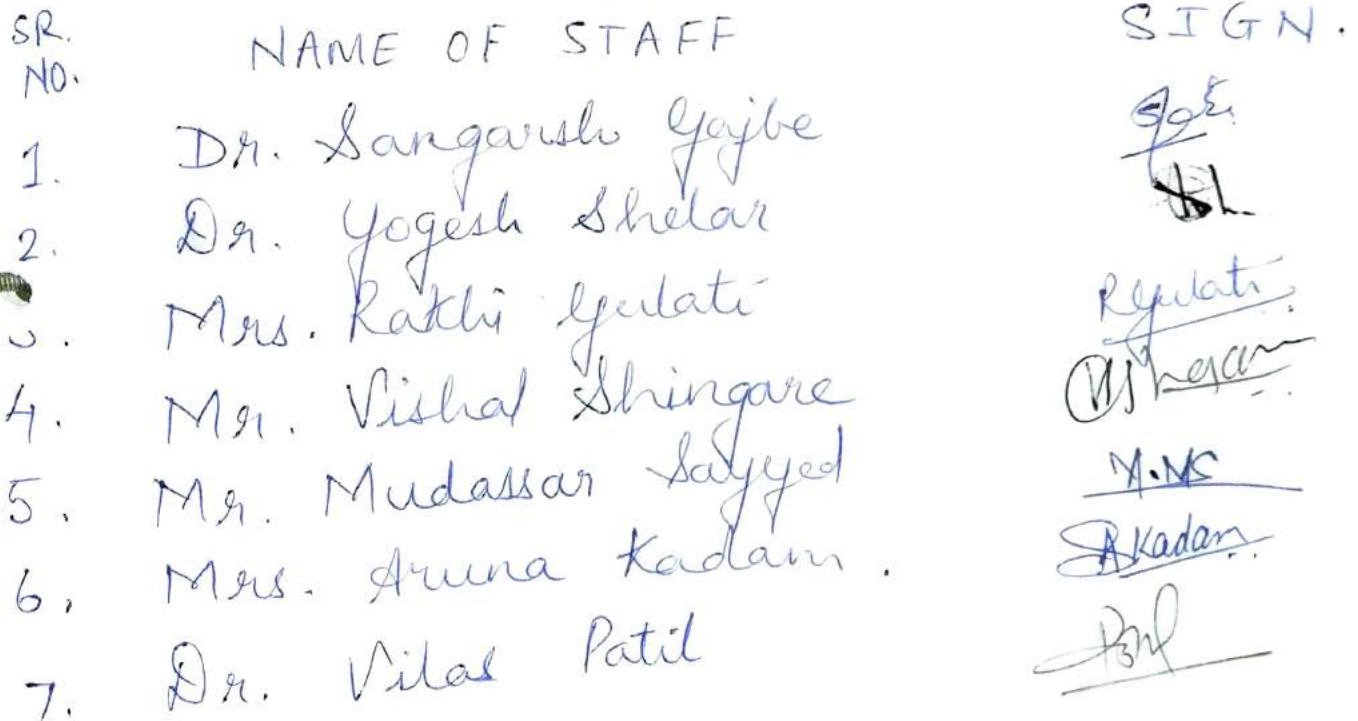 SR. NO. NAME OF STAFF SIGN.
1. Dr. Sangarsh Gajbe
2. Dr. Yogesh Shelar
3. Mrs. Rakhi Gulati RGulati
4. Mr. Vishal Shingare
5. Mr. Mudassar Sayyed M.MS
6. Mrs. Aruna Kadam. AKadam
7. Dr. Vilas Patil